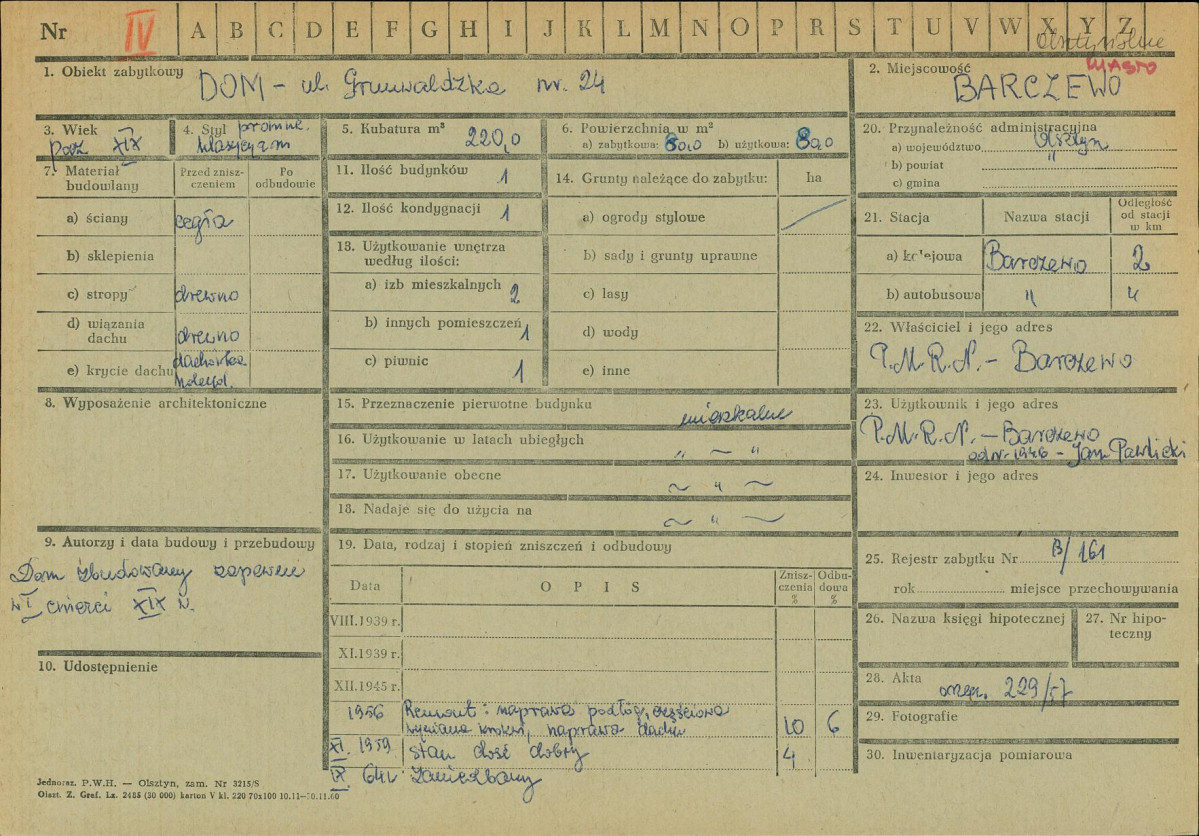 Nr IV A B C D E F G H I J K L M N O P R S T U V W X Y Z
Olsztyńskie
MIASTO
1. Obiekt zabytkowy DOM - ul. Grunwaldzka nr. 24
2. Miejscowość BARCZEWO
3. Wiek
pocz. XIX
4. Styl prowinc.
klasycyzm
5. Kubatura m³ 220,0
6. Powierzchnia w m²
a) zabytkowa: 80,0 b) użytkowa: 80,0
20. Przynależność administracyjna
a) województwo Olsztyn
b) powiat "
c) gmina
7. Materiał budowlany
Przed znisz-
czeniem
Po
odbudowie
a) ściany cegła
b) sklepienia
c) stropy drewno
d) wiązania
dachu drewno
e) krycie dachu dachówka
holend.
11. Ilość budynków 1
12. Ilość kondygnacji 1
13. Użytkowanie wnętrza
według ilości:
a) izb mieszkalnych 2
b) innych pomieszczeń 1
c) piwnic 1
14. Grunty należące do zabytku: ha
a) ogrody stylowe
b) sady i grunty uprawne
c) lasy
d) wody
e) inne
21. Stacja Nazwa stacji
Odległość
od stacji
w km
a) kolejowa Barczewo 2
b) autobusowa "
22. Właściciel i jego adres
P.M.R.N. - Barczewo
8. Wyposażenie architektoniczne
15. Przeznaczenie pierwotne budynku mieszkalne
16. Użytkowanie w latach ubiegłych " ~ "
17. Użytkowanie obecne ~ " ~
18. Nadaje się do użycia na ~ " ~
23. Użytkownik i jego adres
P.M.R.N. - Barczewo
od nr. 1946 - Jan Pawlicki
24. Inwestor i jego adres
9. Autorzy i data budowy i przebudowy
Dom zbudowany zapewne
w I ćwierci XIX w.
10. Udostępnienie
19. Data, rodzaj i stopień zniszczeń i odbudowy
Data OPIS
Znisz-
czenia
%
Odbu-
dowa
%
VIII.1939 r.
XI.1939 r.
XII.1945 r.
1956 Remont: naprawa podłóg, częściowa
wymiana krokwi, naprawa dachu 10 6
XI. 1959 stan dość dobry 4
IX. 64r. Zaniedbany
25. Rejestr zabytku Nr B/161
rok miejsce przechowywania
26. Nazwa księgi hipotecznej
27. Nr hipo-
teczny
28. Akta orzecz. 229/57
29. Fotografie
30. Inwentaryzacja pomiarowa
Jednoraz. P.W.H. — Olsztyn, zam. Nr 3215/S
Olszt. Z. Graf. Lz. 2485 (30 000) karton V kl. 220 70x100 10.11—30.11.60